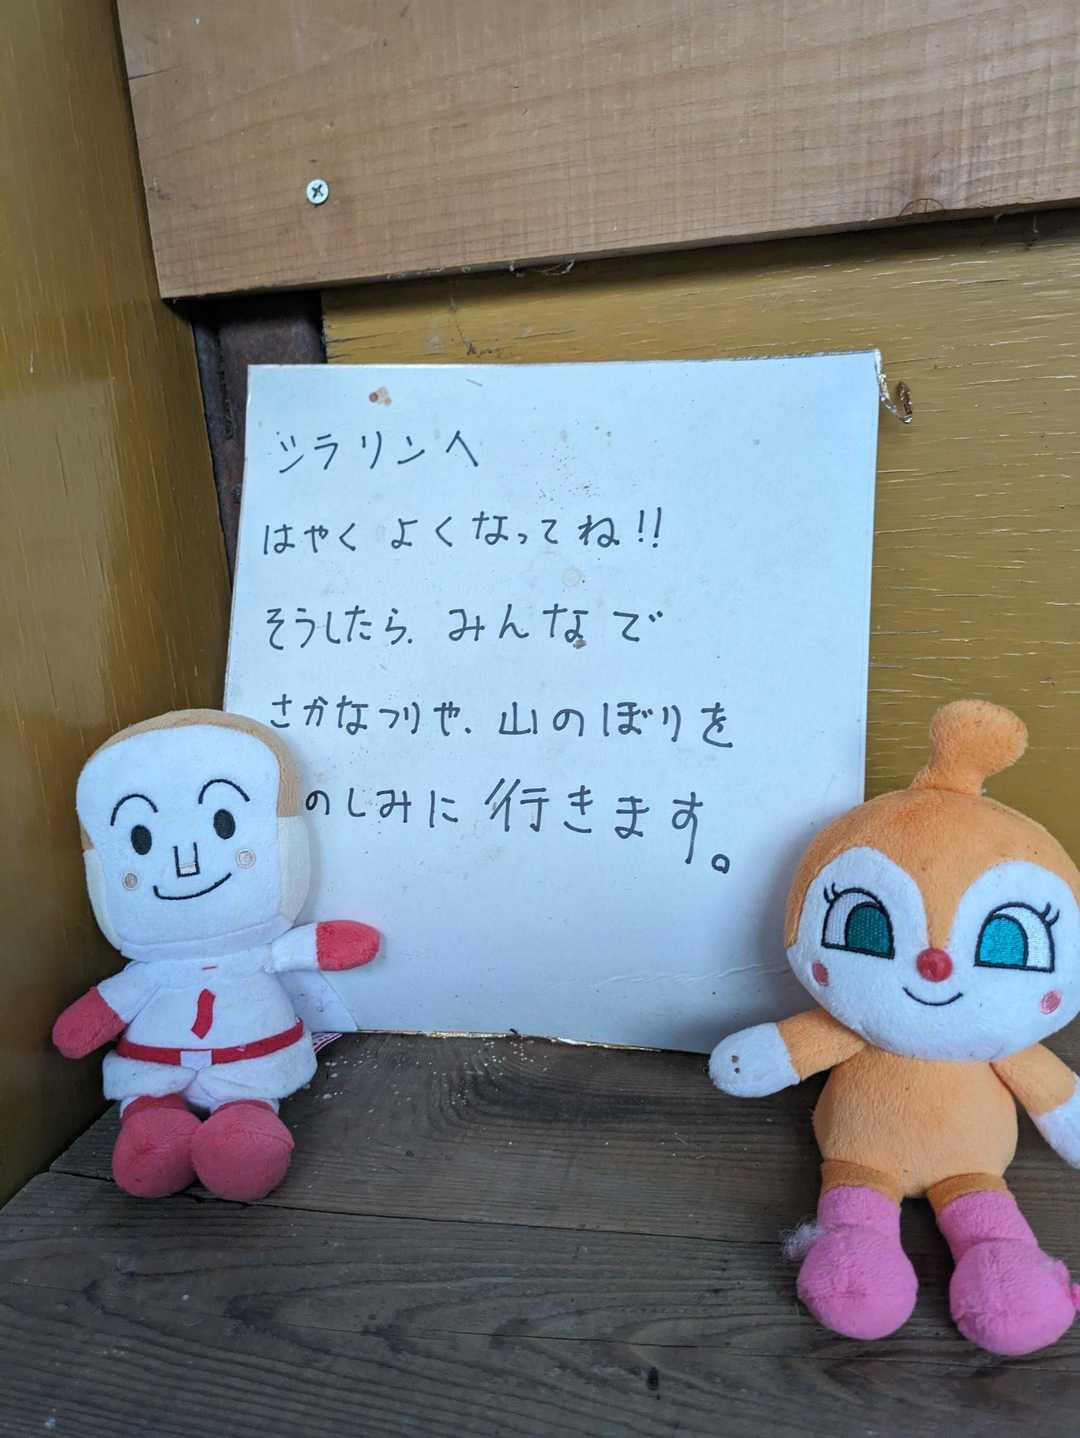 ジラリンへ
はやく よくなってね!!
そうしたら、みんなで
さかなつりや、山のぼりを
のしみに 行きます。